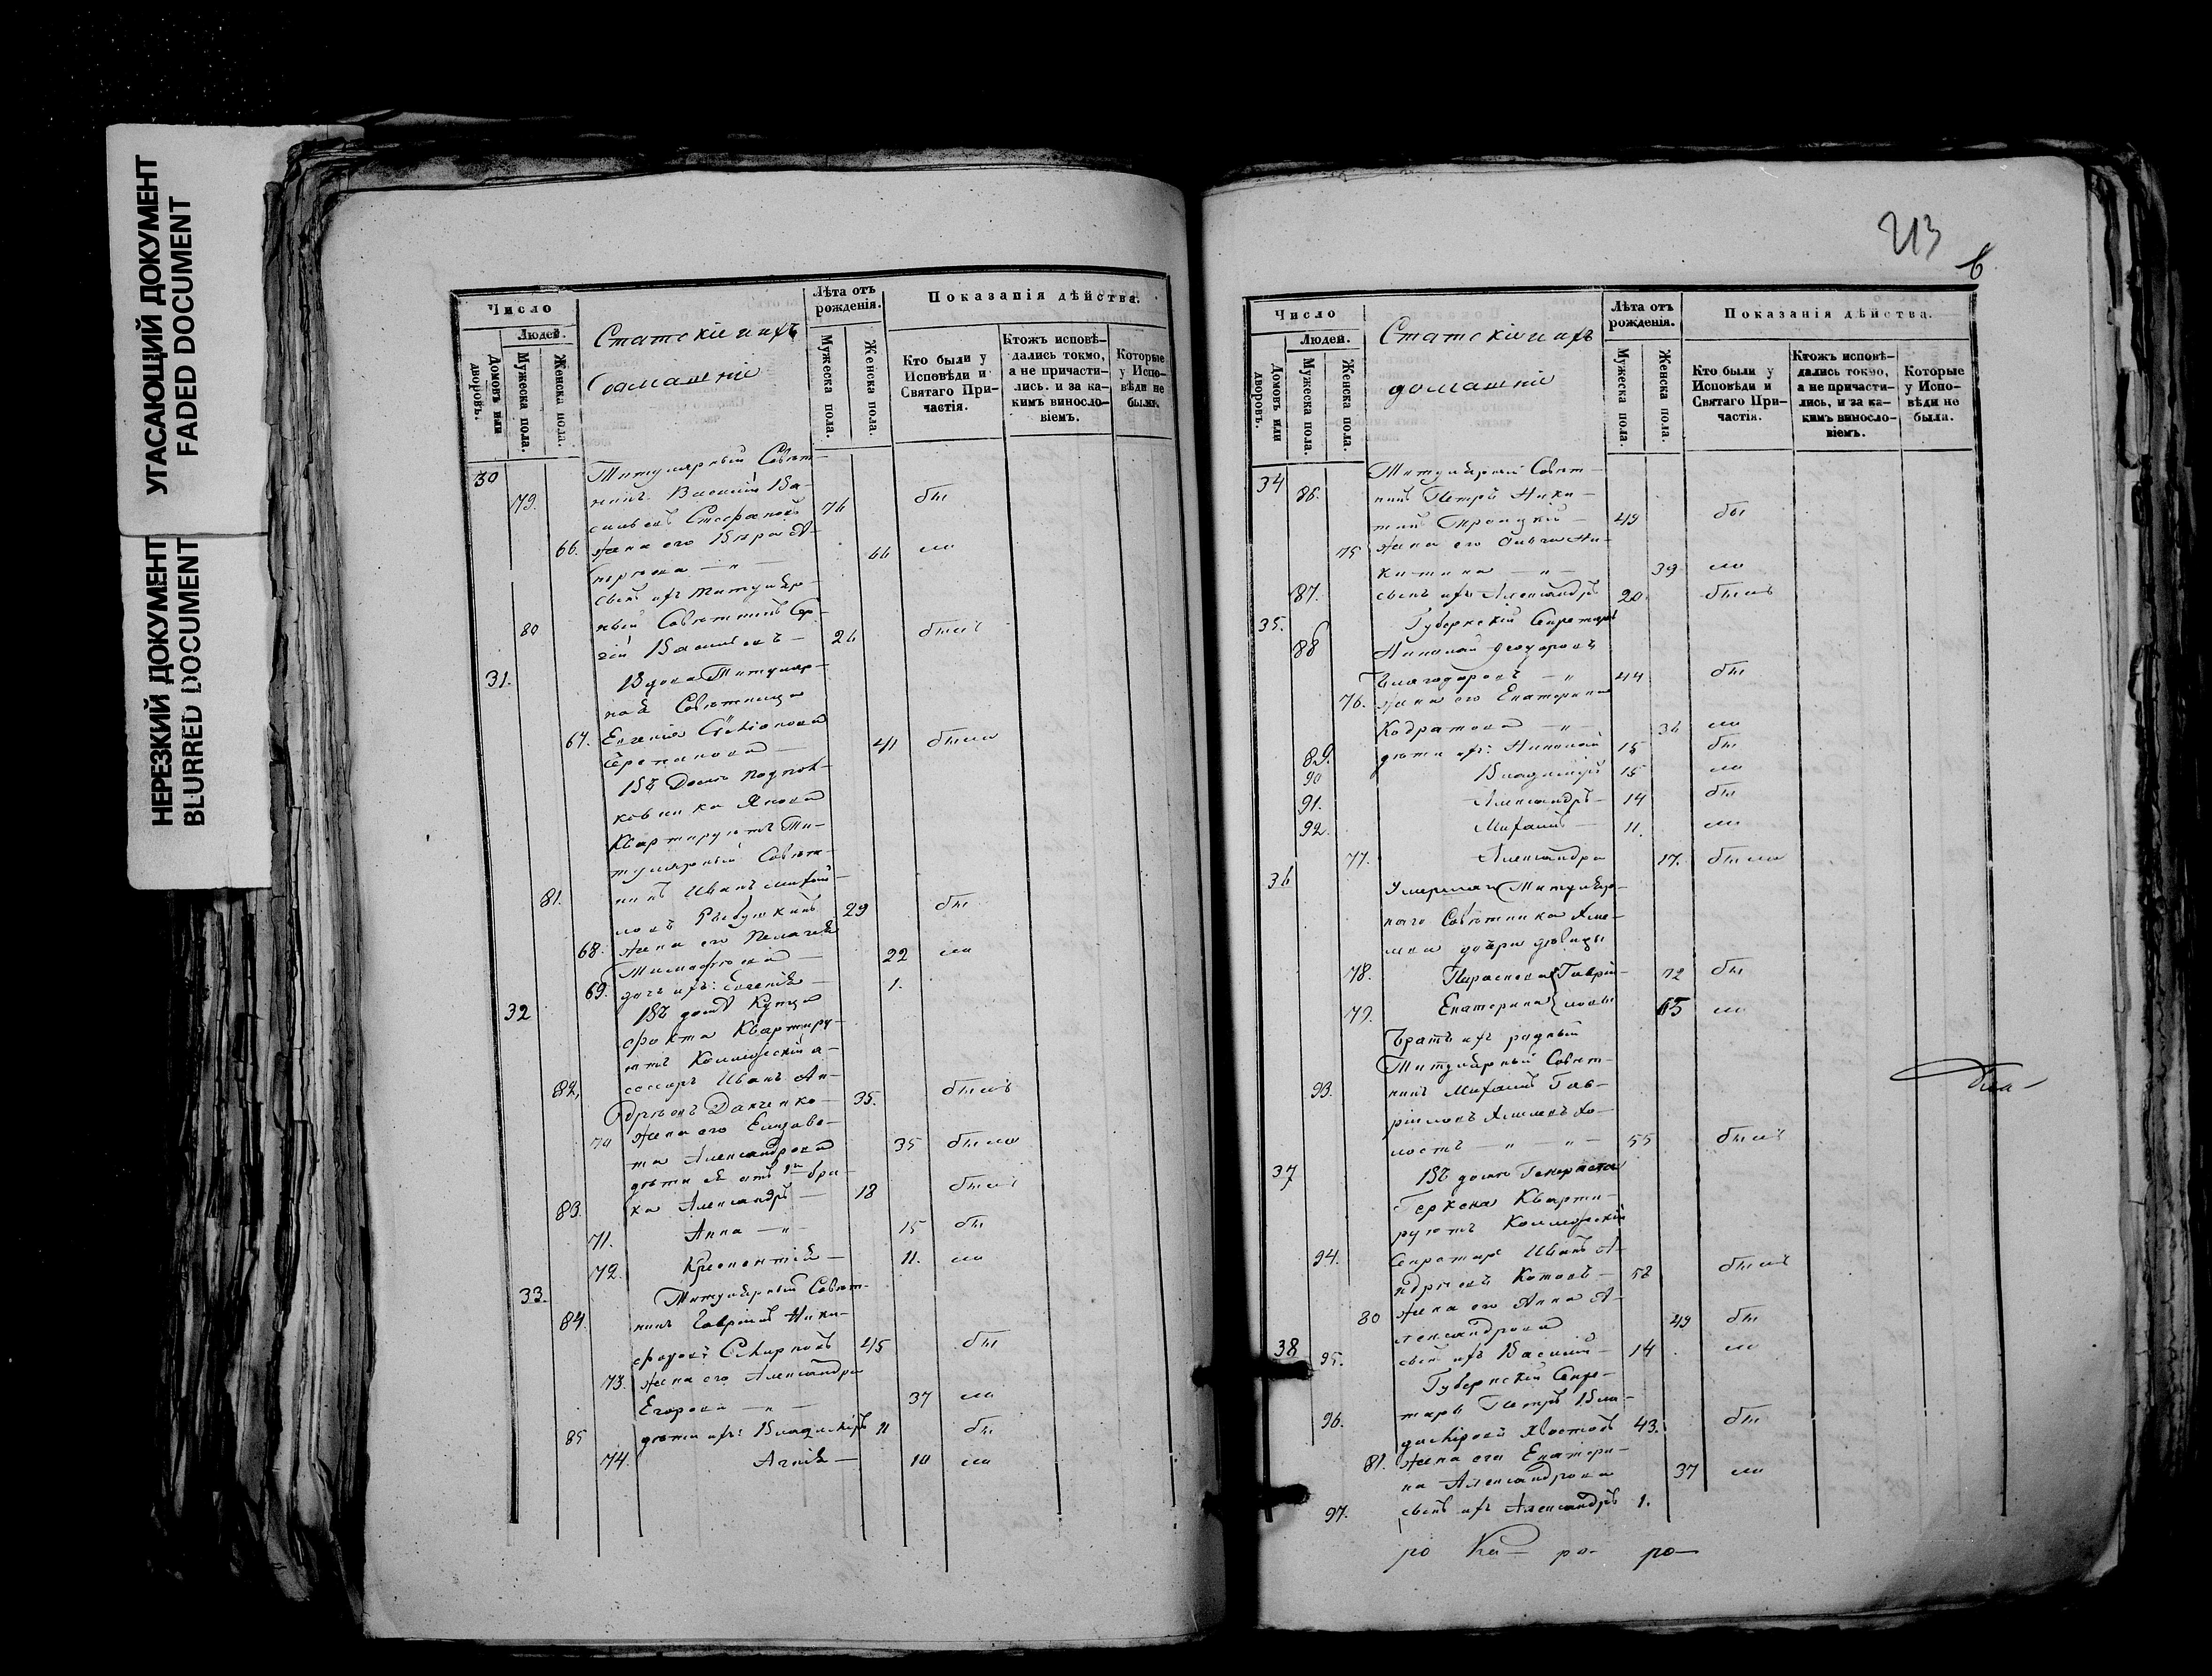 УГАСАЮЩИЙ ДОКУМЕНТ
FADED DOCUMENT
НЕРЕЗКИЙ ДОКУМЕНТ
BLURRED DOCUMENT
Число
Людей.
Домовъ или дворовъ.
Мужеска пола.
Женска пола.
Статскіе и ихъ
домашніе
Лѣта отъ рожденія.
Мужеска пола.
Женска пола.
Показанія дѣйства.
Кто были у Исповѣди и Святаго Причастія.
Ктожъ исповѣдались токмо, а не причастились. и за какимъ винословіемъ.
Которые у Исповѣди не были.
30 Титулярный Совѣт-
79. никъ Василій Ва-
сильевъ 76 бы
66. жена его Вѣра
66 ли
сынъ ихъ титуляр-
80 ный Совѣтникъ Сер-
гій Васильевъ 26 былъ
31. Вдова Титуляр-
ная Совѣтница
67. Евгенія
41 была
Въ Домѣ Подпол-
ковника
Квартируютъ Ти-
тулярный Совѣт-
81. никъ Иванъ Михай-
ловъ 29 бы
68. жена его Пелагея
Тимофѣева 22 ли
69. дочь ихъ: Евгенія 1.
32 Въ домѣ Купца
Квартиру-
ютъ Коллежскій а-
82. сессоръ Иванъ Ан-
дреевъ Данченко 35. былъ
70 жена его Елизаве-
та Александрова 35 была
дѣти ея отъ 1го бра-
83. ка Александръ 18 былъ
71. Анна 15 бы
72. 11. ли
33. Титулярный Совѣт-
84. никъ Гавріилъ Ники-
форовъ Смирновъ 45 бы
73. жена его Александра
Егорова 37 ли
85 дѣти ихъ: Владиміръ 11 бы
74. Агнія 10 ли
213
6
Число
Людей.
Домовъ или дворовъ.
Мужеска пола.
Женска пола.
Статскіе и ихъ
домашніе
Лѣта отъ рожденія.
Мужеска пола.
Женска пола.
Показанія дѣйства.
Кто были у Исповѣди и Святаго Причастія.
Ктожъ исповѣдались токмо, а не причастились, и за какимъ винословіемъ.
Которые у Исповѣди не были.
34 Титулярный Совѣт-
86. никъ Петръ Ники-
тинъ Троицкій 49 бы
75 жена его Ольга Ни-
китина 39 ли
87. сынъ ихъ Александръ 20. былъ
35. Губернскій Секретарь
88 Николай Ѳеодоровъ
Благодаровъ 44 бы
76. жена его Екатерина
Кодратова 36 ли
89. дѣти ихъ: Николай 15 бы
90 Владиміръ 15 ли
91. Александръ 14 бы
92. Михаилъ 11. ли
77. Александра 17. была
36 Умершаго Титуляр-
наго Совѣтника
дочери дѣвицы
78. Параскева Гаврі- 72 бы
79. Екатерина иловы 65 ли
Братъ ихъ родный
Титулярный Совѣт-
93. никъ Михаилъ Гав-
ріиловъ хо-
лостъ 55 былъ
37 Въ домѣ Генерала
Геркена Кварти-
руютъ Коллежскій
94. Секретарь Иванъ А-
ндреевъ Котовъ 58 былъ
80 жена его Анна А-
лександрова 49 бы
95. сынъ ихъ Василій 14 ли
38 Губернскій Секре-
96. тарь Петръ Вла-
диміровъ Хвостовъ 43. бы
81. жена его Екатери-
на Александрова 37 ли
97. сынъ ихъ Александръ 1.